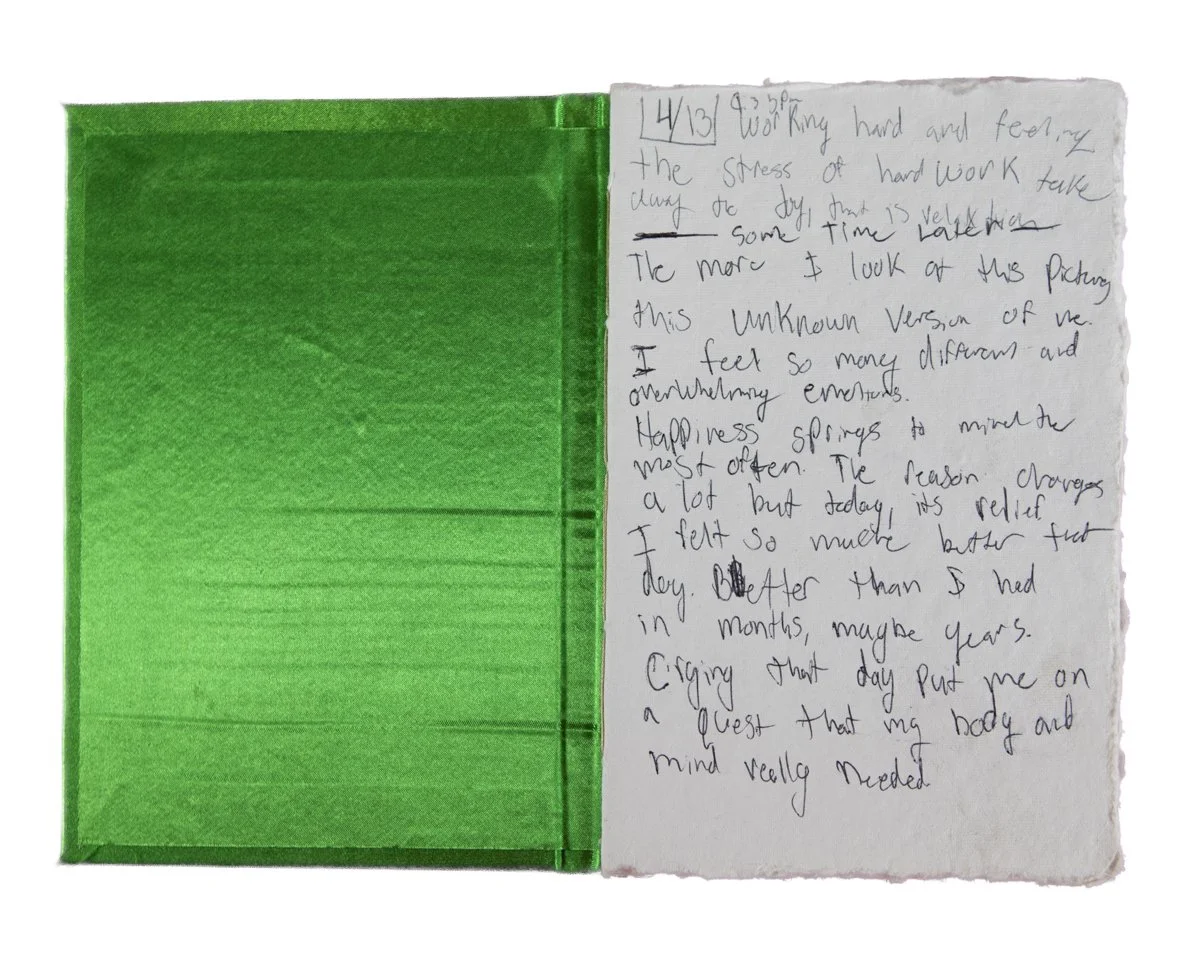 4/13 Working hard and feeling
the stress of hard work take
away the day, that is relaxation
some Time Later
The more I look at this picture,
this unknown version of me.
I feel so many different and
overwhelming emotions.
Happiness springs to mind the
most often. The reason changes
a lot but today, its relief
I felt so much better that
day. Better than I had
in months, maybe years.
Crying that day put me on
a quest that my body and
mind really needed